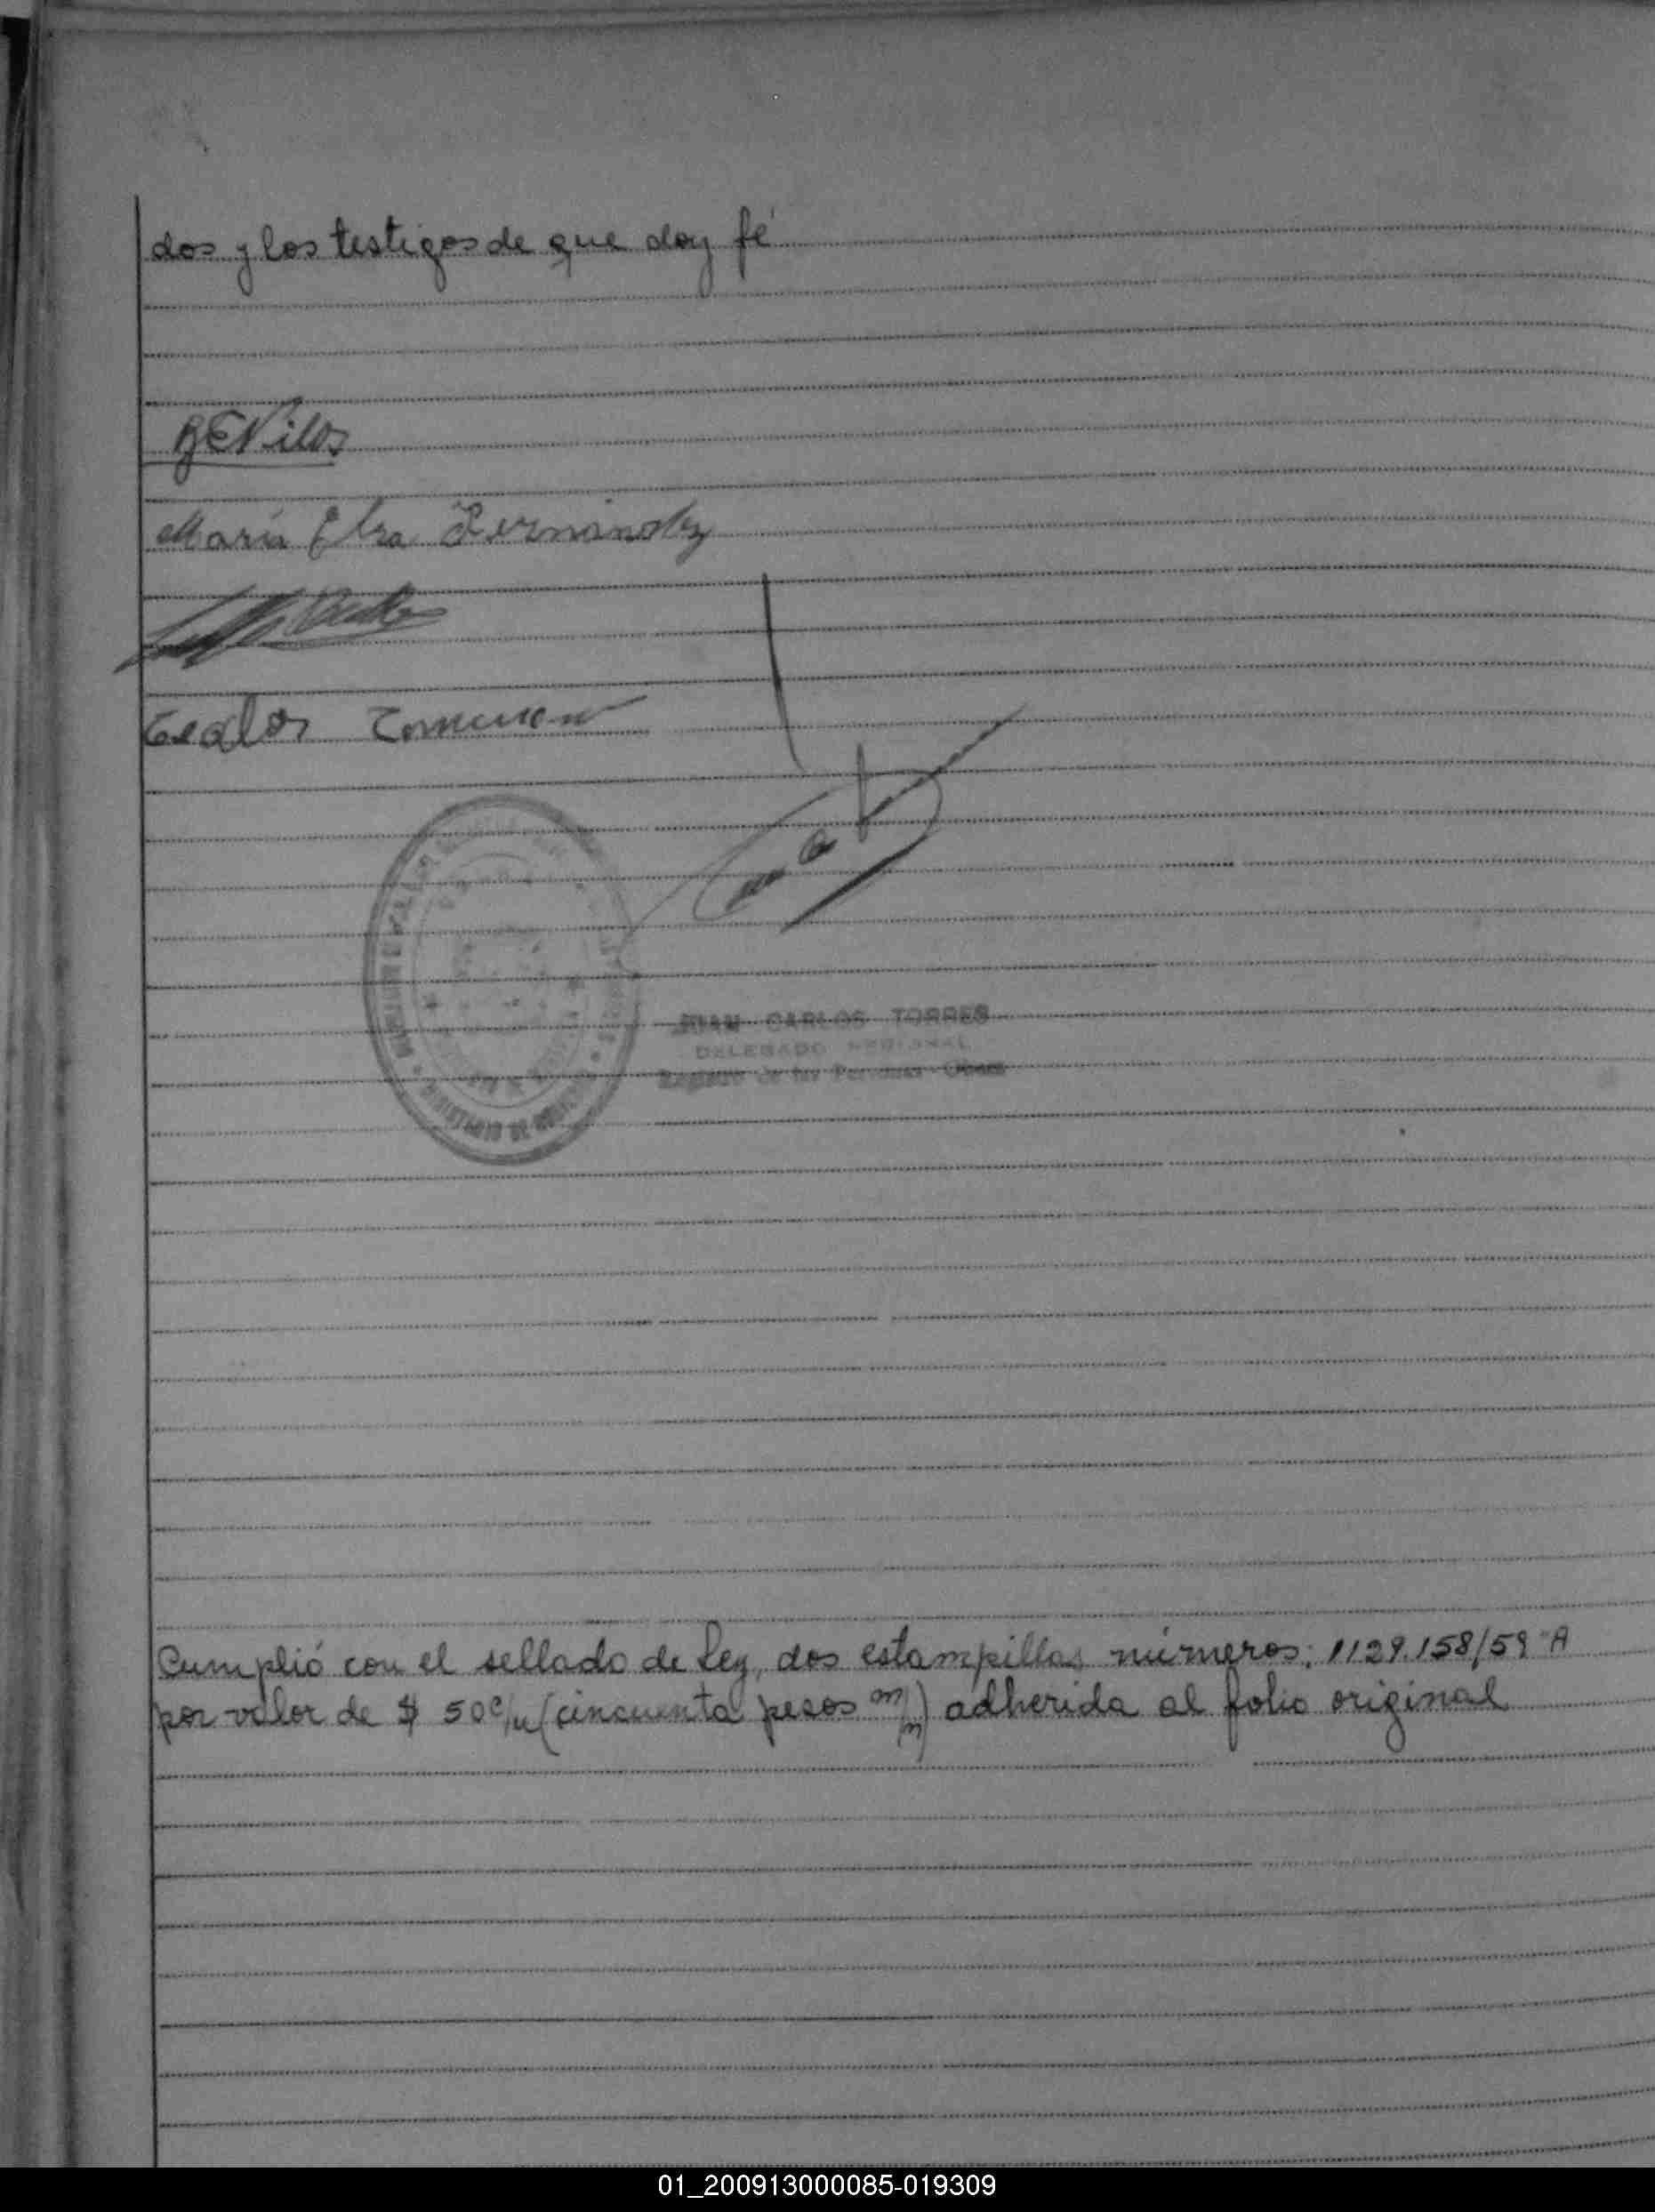 dos y los testigos de que doy fé
María Elsa Fernández
JUAN CARLOS TORRES
DELEGADO REGIONAL
Registro de las Personas
Cumplió con el sellado de Ley, dos estampillas números: 1129.158/59 "A
por valor de $ 50 c/u (cincuenta pesos m/n) adherida al folio original
01_200913000085-019309